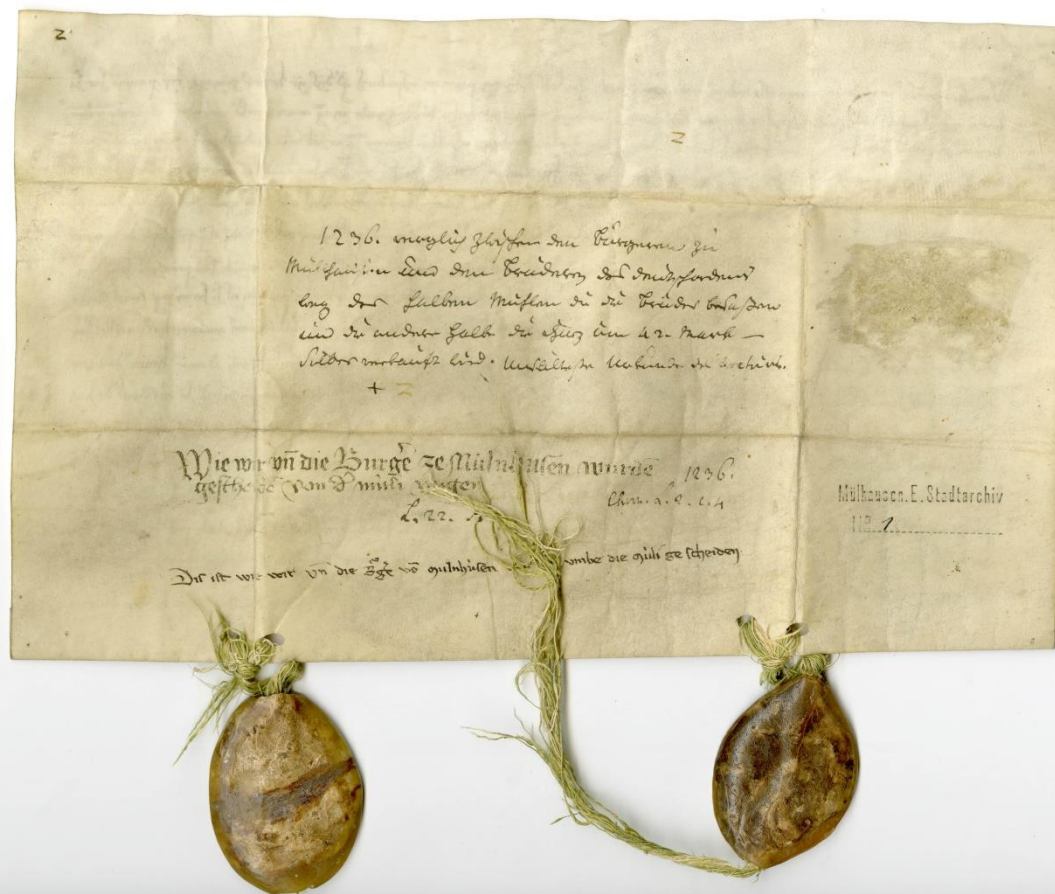 z
z
1236. verglich zwischen den Bürgeren zu
Mülhausen und dem Brüderen des deutschordens
weg der halben Mühlen die die Brüder besaßen
und die andere halbe die ihnen um 42. Mark –
Silber verkauft wird. Urälteste Urkunde des Archivs.
+ z
Wie wir vñ die Burg'e ze Mulnhusen wurden 1236.
gescheiden von d' muli wegen
L. 22.
Dis ist wie wir vñ die B'ge võ Mulnhusen umbe die Muli gescheiden
Mülhausen.E.Stadtarchiv
NO. 1